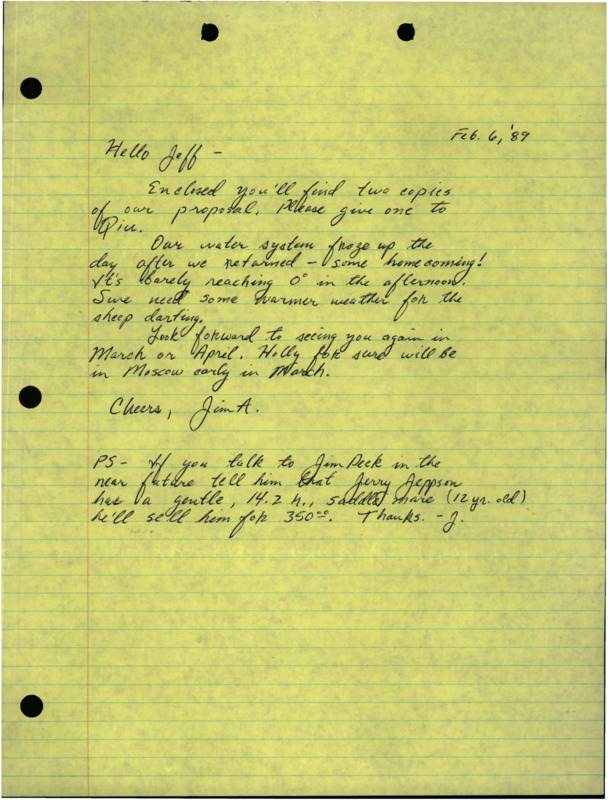 Feb. 6, '89
Hello Jeff -
Enclosed you'll find two copies
of our proposal. Please give one to
Qiu.
Our water system froze up the
day after we returned - some homecoming!
It's barely reaching 0° in the afternoon.
Sure need some warmer weather for the
sheep darting.
Look forward to seeing you again in
March or April. Holly for sure will be
in Moscow early in March.
Cheers, Jim A.
PS - If you talk to Jim Peek in the
near future tell him that Jerry Jeppson
has a gentle, 14.2 h., saddle mare (12 yr. old)
he'll sell him for 350°°. Thanks. - J.